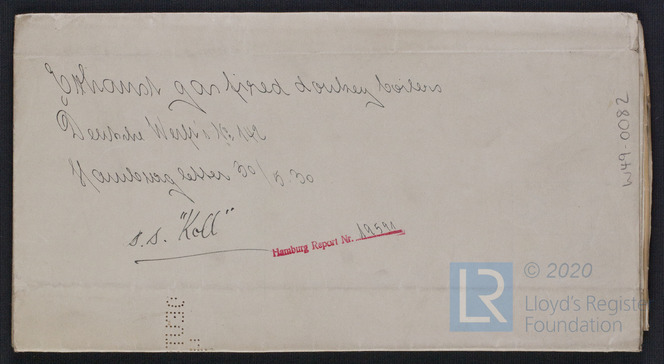 Exhaust gas fired donkey boilers
Deutsche Werft No 142
Hamburg letter 30/8.30
s.s. "Koll"
Hamburg Report Nr. 19591
W49-0082
LR © 2020
Lloyd's Register
Foundation